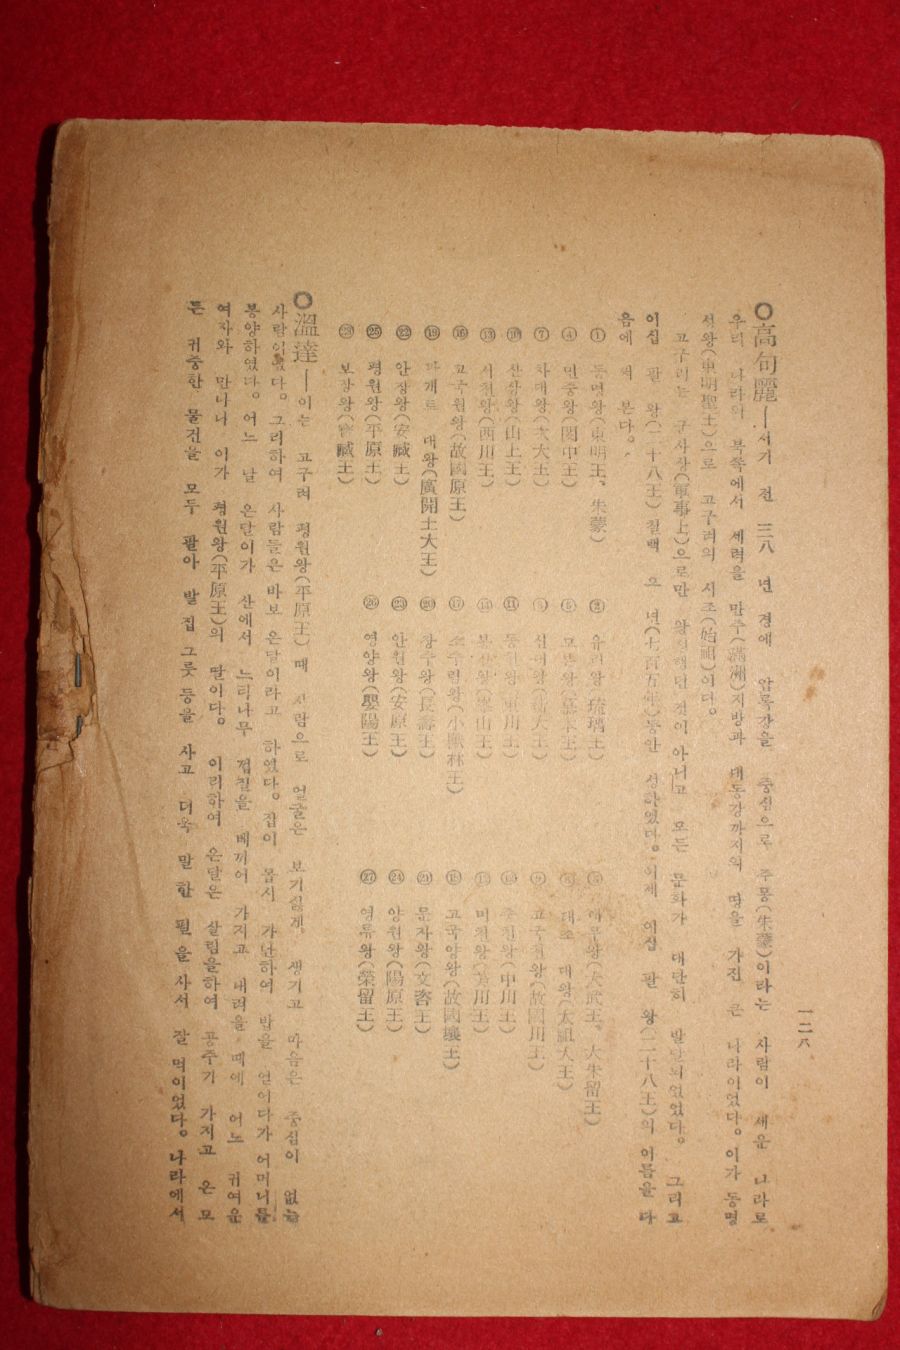 一二八
○高句麗―서기 전 三八 년 경에 압록강을 중심으로 주몽(朱蒙)이라는 사람이 세운 나라로
우리 나라의 북쪽에서 세력을 만주(滿洲)지방과 대동강까지의 땅을 가진 큰 나라이었다。이가 동명
성왕(東明聖王)으로 고구려의 시조(始祖)이다。
고구려는 군사상(軍事上)으로만 왕성했던 것이 아니고 모든 문화가 대단히 발달되었었다。 그리고
이십 팔 왕(二十八王) 칠백 으 년(七百五年)동안 성하였다。이제 이십 팔 왕(二十八王)의 이름을 다
음에 적 본다。
① 동명왕(東明王、朱蒙) ② 유리왕(琉璃王) ③ 대무왕(大武王、大朱留王)
④ 민중왕(閔中王) ⑤ 모본왕(慕本王) ⑥ 태조 대왕(太祖大王)
⑦ 차대왕(次大王) ⑧ 신대왕(新大王) ⑨ 고국천왕(故國川王)
⑩ 산상왕(山上王) ⑪ 동천왕(東川王) ⑫ 중천왕(中川王)
⑬ 서천왕(西川王) ⑭ 봉산왕(烽山王) ⑮ 미천왕(美川王)
⑯ 고국원왕(故國原王) ⑰ 소수림왕(小獸林王) ⑱ 고국양왕(故國壤王)
⑲ 광개토 대왕(廣開土大王) ⑳ 장수왕(長壽王) ㉑ 문자왕(文咨王)
㉒ 안장왕(安臧王) ㉓ 안원왕(安原王) ㉔ 양원왕(陽原王)
㉕ 평원왕(平原王) ㉖ 영양왕(嬰陽王) ㉗ 영류왕(榮留王)
㉘ 보장왕(寶臧王)
○溫達―이는 고구려 평원왕(平原王) 때 사람으로 얼굴은 보기싫게 생기고 마음은 중심이 없는
사람이었다。그리하여 사람들은 바보 온달이라고 하였다。집이 몹시 가난하여 밥을 얻어다가 어머니를
봉양하였다。어느 날 온달이가 산에서 느티나무 껍질을 베끼어 가지고 내려올 때에 어느 귀여운
여자와 만나니 이가 평원왕(平原王)의 딸이다。 이리하여 온달은 살림을하여 공주기 가지고 온 모
든 귀중한 물건을 모두 팔아 발 집 그릇 등을 사고 더욱 말 한 필을 사서 잘 먹이었다。나라에서